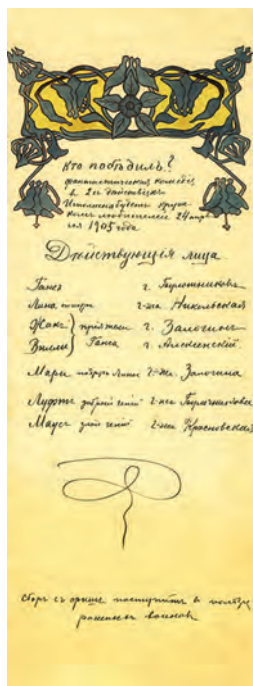 Кто побѣдилъ?
фантастическая комедія
въ 2х дѣйствіяхъ
Исполнена будетъ круж
комъ любителей 24 апрѣ
ля 1905 года
Дѣйствующія лица
Гансъ г.
Лина г-жа Никольская
Жакъ } пріятели г. Залогинъ
Вилли } Ганса г. Алексенскій.
Мари подруга Лины г-жа. Залогина
Луфтъ добрый геній г-жа
Маусъ злой геній г-жа Красновская
сборъ съ поступитъ в пользу
раненыхъ воиновъ